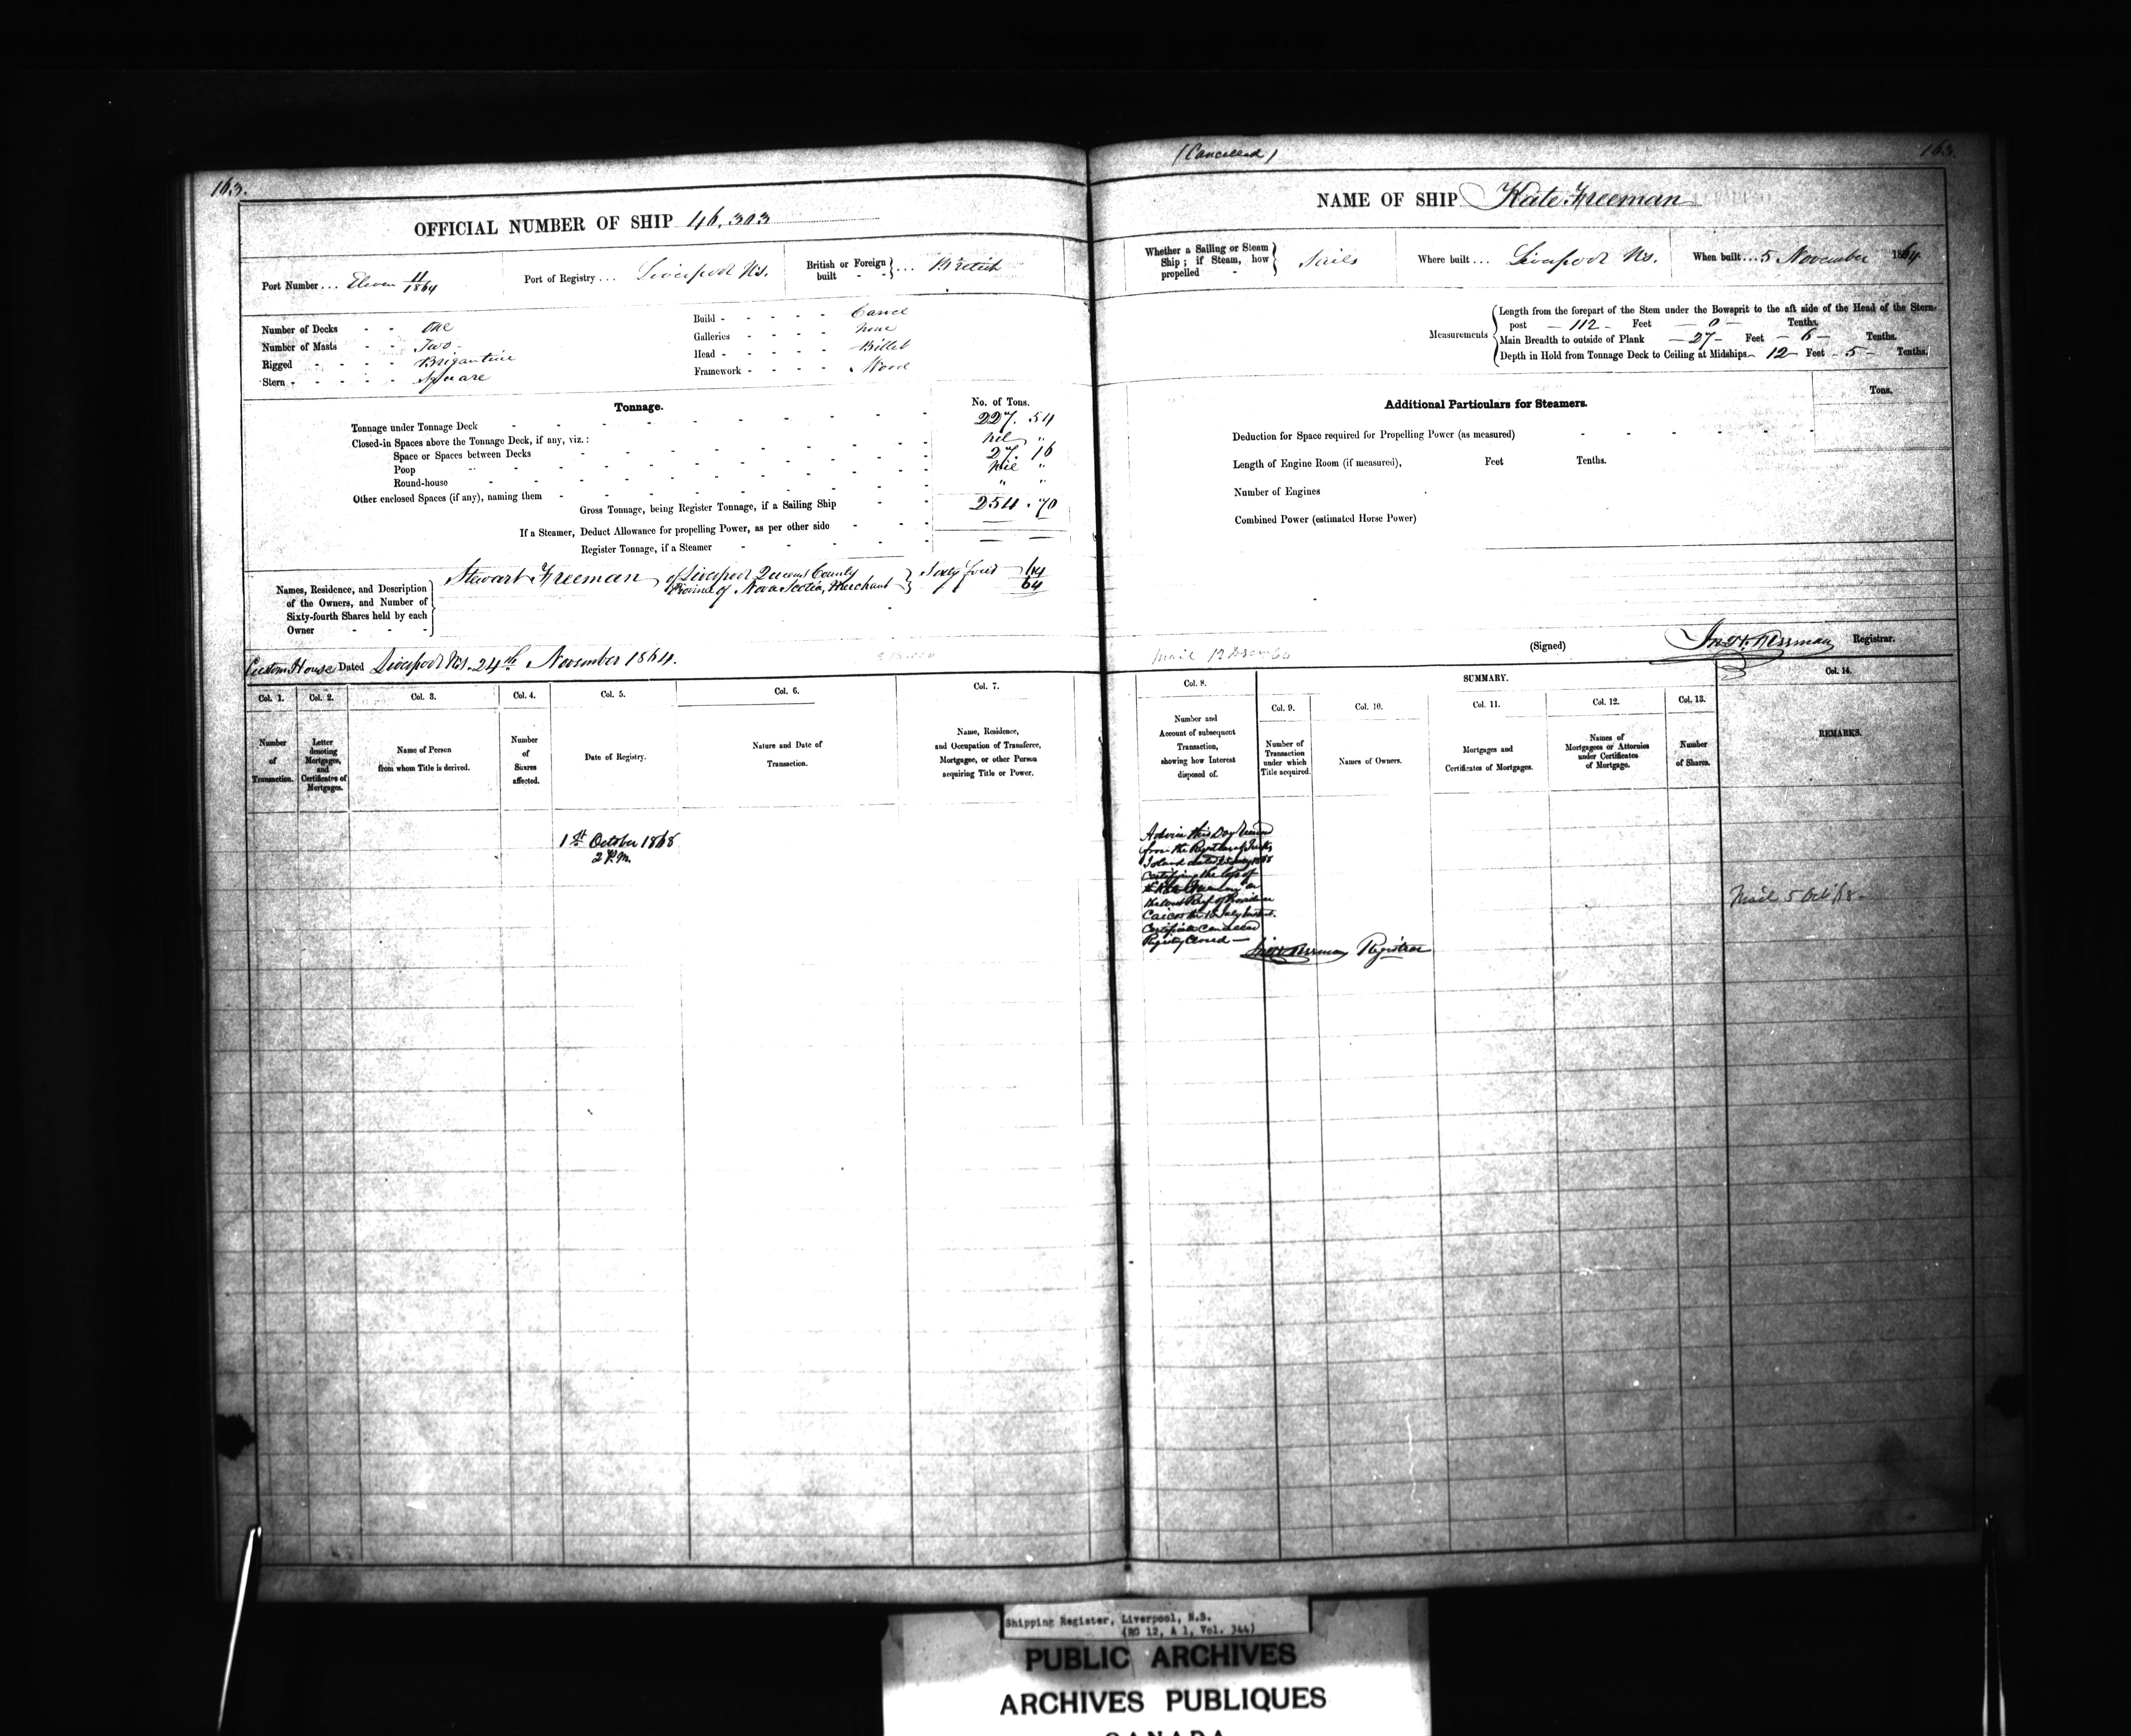 163.
OFFICIAL NUMBER OF SHIP 46,303
Port Number ... Eleven 11/1864
Port of Registry ... Liverpool N.S.
British or Foreign built - - } ... British
Number of Decks - - One
Number of Masts - - Two -
Rigged - - - - Brigantine
Stern - - - - - Square
Build - - - - - Carvel
Galleries - - - - None
Head - - - - - Billet
Framework - - - - Wood
Tonnage.
No. of Tons.
Tonnage under Tonnage Deck - 227. 54
Closed-in Spaces above the Tonnage Deck, if any, viz.:
Space or Spaces between Decks nil "
Poop 27. 16
Round-house nil "
Other enclosed Spaces (if any), naming them " "
Gross Tonnage, being Register Tonnage, if a Sailing Ship 254. 70
If a Steamer, Deduct Allowance for propelling Power, as per other side
Register Tonnage, if a Steamer
Names, Residence, and Description
of the Owners, and Number of
Sixty-fourth Shares held by each
Owner - - -
Stewart Freeman of Liverpool Queens County
Province of Nova Scotia, Merchant } Sixty four 64/64
Custom House Dated Liverpool N.S. 24th November 1864.
Col. 1. Col. 2. Col. 3. Col. 4. Col. 5. Col. 6. Col. 7.
Number of Transaction.
Letter denoting Mortgages, and Certificates of Mortgages.
Name of Person from whom Title is derived.
Number of Shares affected.
Date of Registry.
Nature and Date of Transaction.
Name, Residence, and Occupation of Transferee, Mortgagee, or other Person acquiring Title or Power.
1st October 1868
2 P.M.
(Cancelled)
163.
NAME OF SHIP Kate Freeman
Whether a Sailing or Steam Ship; if Steam, how propelled - } Sails
Where built ... Liverpool N.S.
When built ... 5 November 1864
Measurements
Length from the forepart of the Stem under the Bowsprit to the aft side of the Head of the Stern-
post — 112 — Feet — 0 — Tenths.
Main Breadth to outside of Plank — 27 — Feet — 6 — Tenths.
Depth in Hold from Tonnage Deck to Ceiling at Midships — 12 — Feet — 5 — Tenths.
Additional Particulars for Steamers.
Tons.
Deduction for Space required for Propelling Power (as measured)
Length of Engine Room (if measured), Feet Tenths.
Number of Engines
Combined Power (estimated Horse Power)
(Signed) Registrar.
Col. 8. SUMMARY. Col. 14.
Col. 9. Col. 10. Col. 11. Col. 12. Col. 13.
Number and Account of subsequent Transaction, showing how Interest disposed of.
Number of Transaction under which Title acquired.
Names of Owners.
Mortgages and Certificates of Mortgages.
Names of Mortgagees or Attornies under Certificates of Mortgage.
Number of Shares.
REMARKS.
Advice this Day
from the Registrar of Turks
Island dated
Certifying the loss of
the Kate Freeman on
the West Reef of Providence
Caicos the
Certificate Cancelled
Registry Closed —
Registrar
Mail 5 Oct/68 -
Shipping Register, Liverpool, N.S.
(RG 12, A 1, Vol. 344)
PUBLIC ARCHIVES
ARCHIVES PUBLIQUES
CANADA